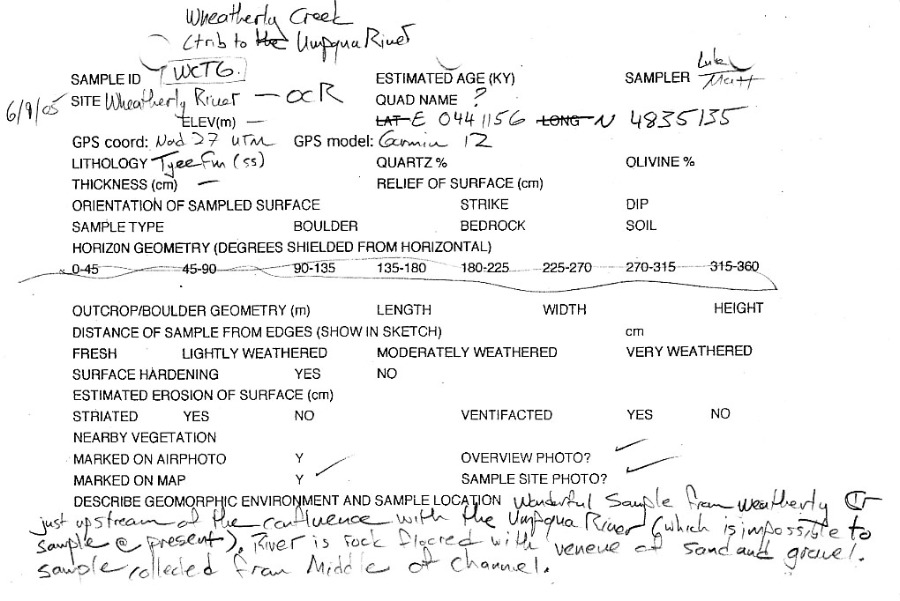 Wheatherly Creek
(trib to the Umpqua River
SAMPLE ID WCTG ESTIMATED AGE (KY) SAMPLER Luke Matt
6/9/05 SITE Wheatherly River — OCR QUAD NAME ?
ELEV(m) — LAT E 0441156 LONG N 4835135
GPS coord: Nad 27 UTM GPS model: Garmin 12
LITHOLOGY Tyee Fm (ss) QUARTZ % OLIVINE %
THICKNESS (cm) — RELIEF OF SURFACE (cm)
ORIENTATION OF SAMPLED SURFACE STRIKE DIP
SAMPLE TYPE BOULDER BEDROCK SOIL
HORIZON GEOMETRY (DEGREES SHIELDED FROM HORIZONTAL)
0-45 45-90 90-135 135-180 180-225 225-270 270-315 315-360
OUTCROP/BOULDER GEOMETRY (m) LENGTH WIDTH HEIGHT
DISTANCE OF SAMPLE FROM EDGES (SHOW IN SKETCH) cm
FRESH LIGHTLY WEATHERED MODERATELY WEATHERED VERY WEATHERED
SURFACE HARDENING YES NO
ESTIMATED EROSION OF SURFACE (cm)
STRIATED YES NO VENTIFACTED YES NO
NEARBY VEGETATION
MARKED ON AIRPHOTO Y OVERVIEW PHOTO? ✓
MARKED ON MAP Y ✓ SAMPLE SITE PHOTO? ✓
DESCRIBE GEOMORPHIC ENVIRONMENT AND SAMPLE LOCATION Wonderful Sample from weatherly Cr
just upstream of the confluence with the Umpqua River (which is impossible to
sample @ present). River is rock floored with veneue of sand and gravel.
sample collected from Middle of channel.